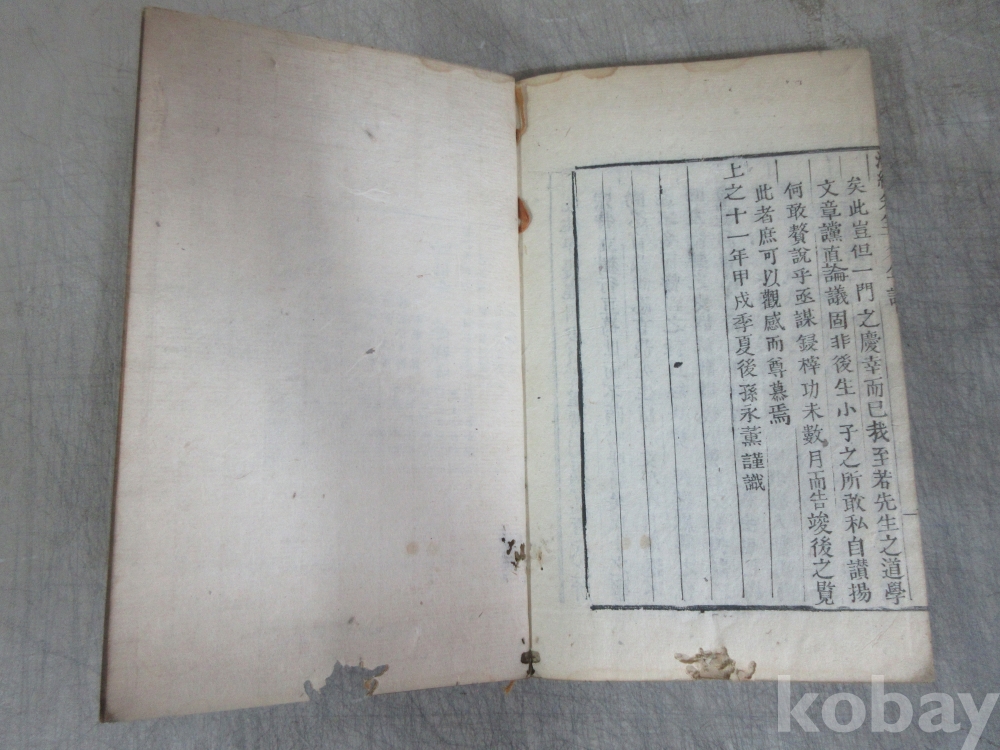 矣此豈但一門之慶幸而已我至若先生之道學
文章讜直論議固非後生小子之所敢私自讃揚
何敢贅說乎亟謀鋟榟功未數月而告竣後之覽
此者庶可以觀感而尊慕焉
上之十一年甲戌季夏後孫永薰謹識
kobay